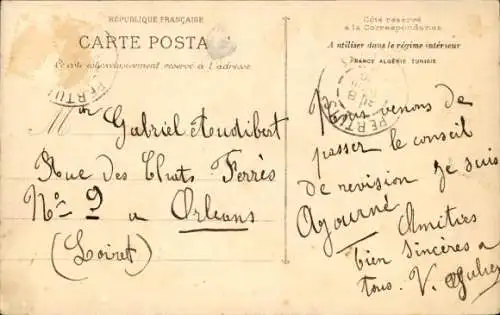 RÉPUBLIQUE FRANÇAISE
CARTE POSTA
Ce côté exclusivement réservé à l'adresse
PERTUIS
Mr Gabriel Audibert
Rue des Chats Ferrés
No 9 a Orleans
(Loiret)
Côté réservé
à la Correspondance
A utiliser dans le régime intérieur
FRANCE ALGÉRIE TUNISIE
PERTUIS
Nous venons de
passer le conseil
de revision je suis
Agourné Amitiés
bien sincères a
tous. V.